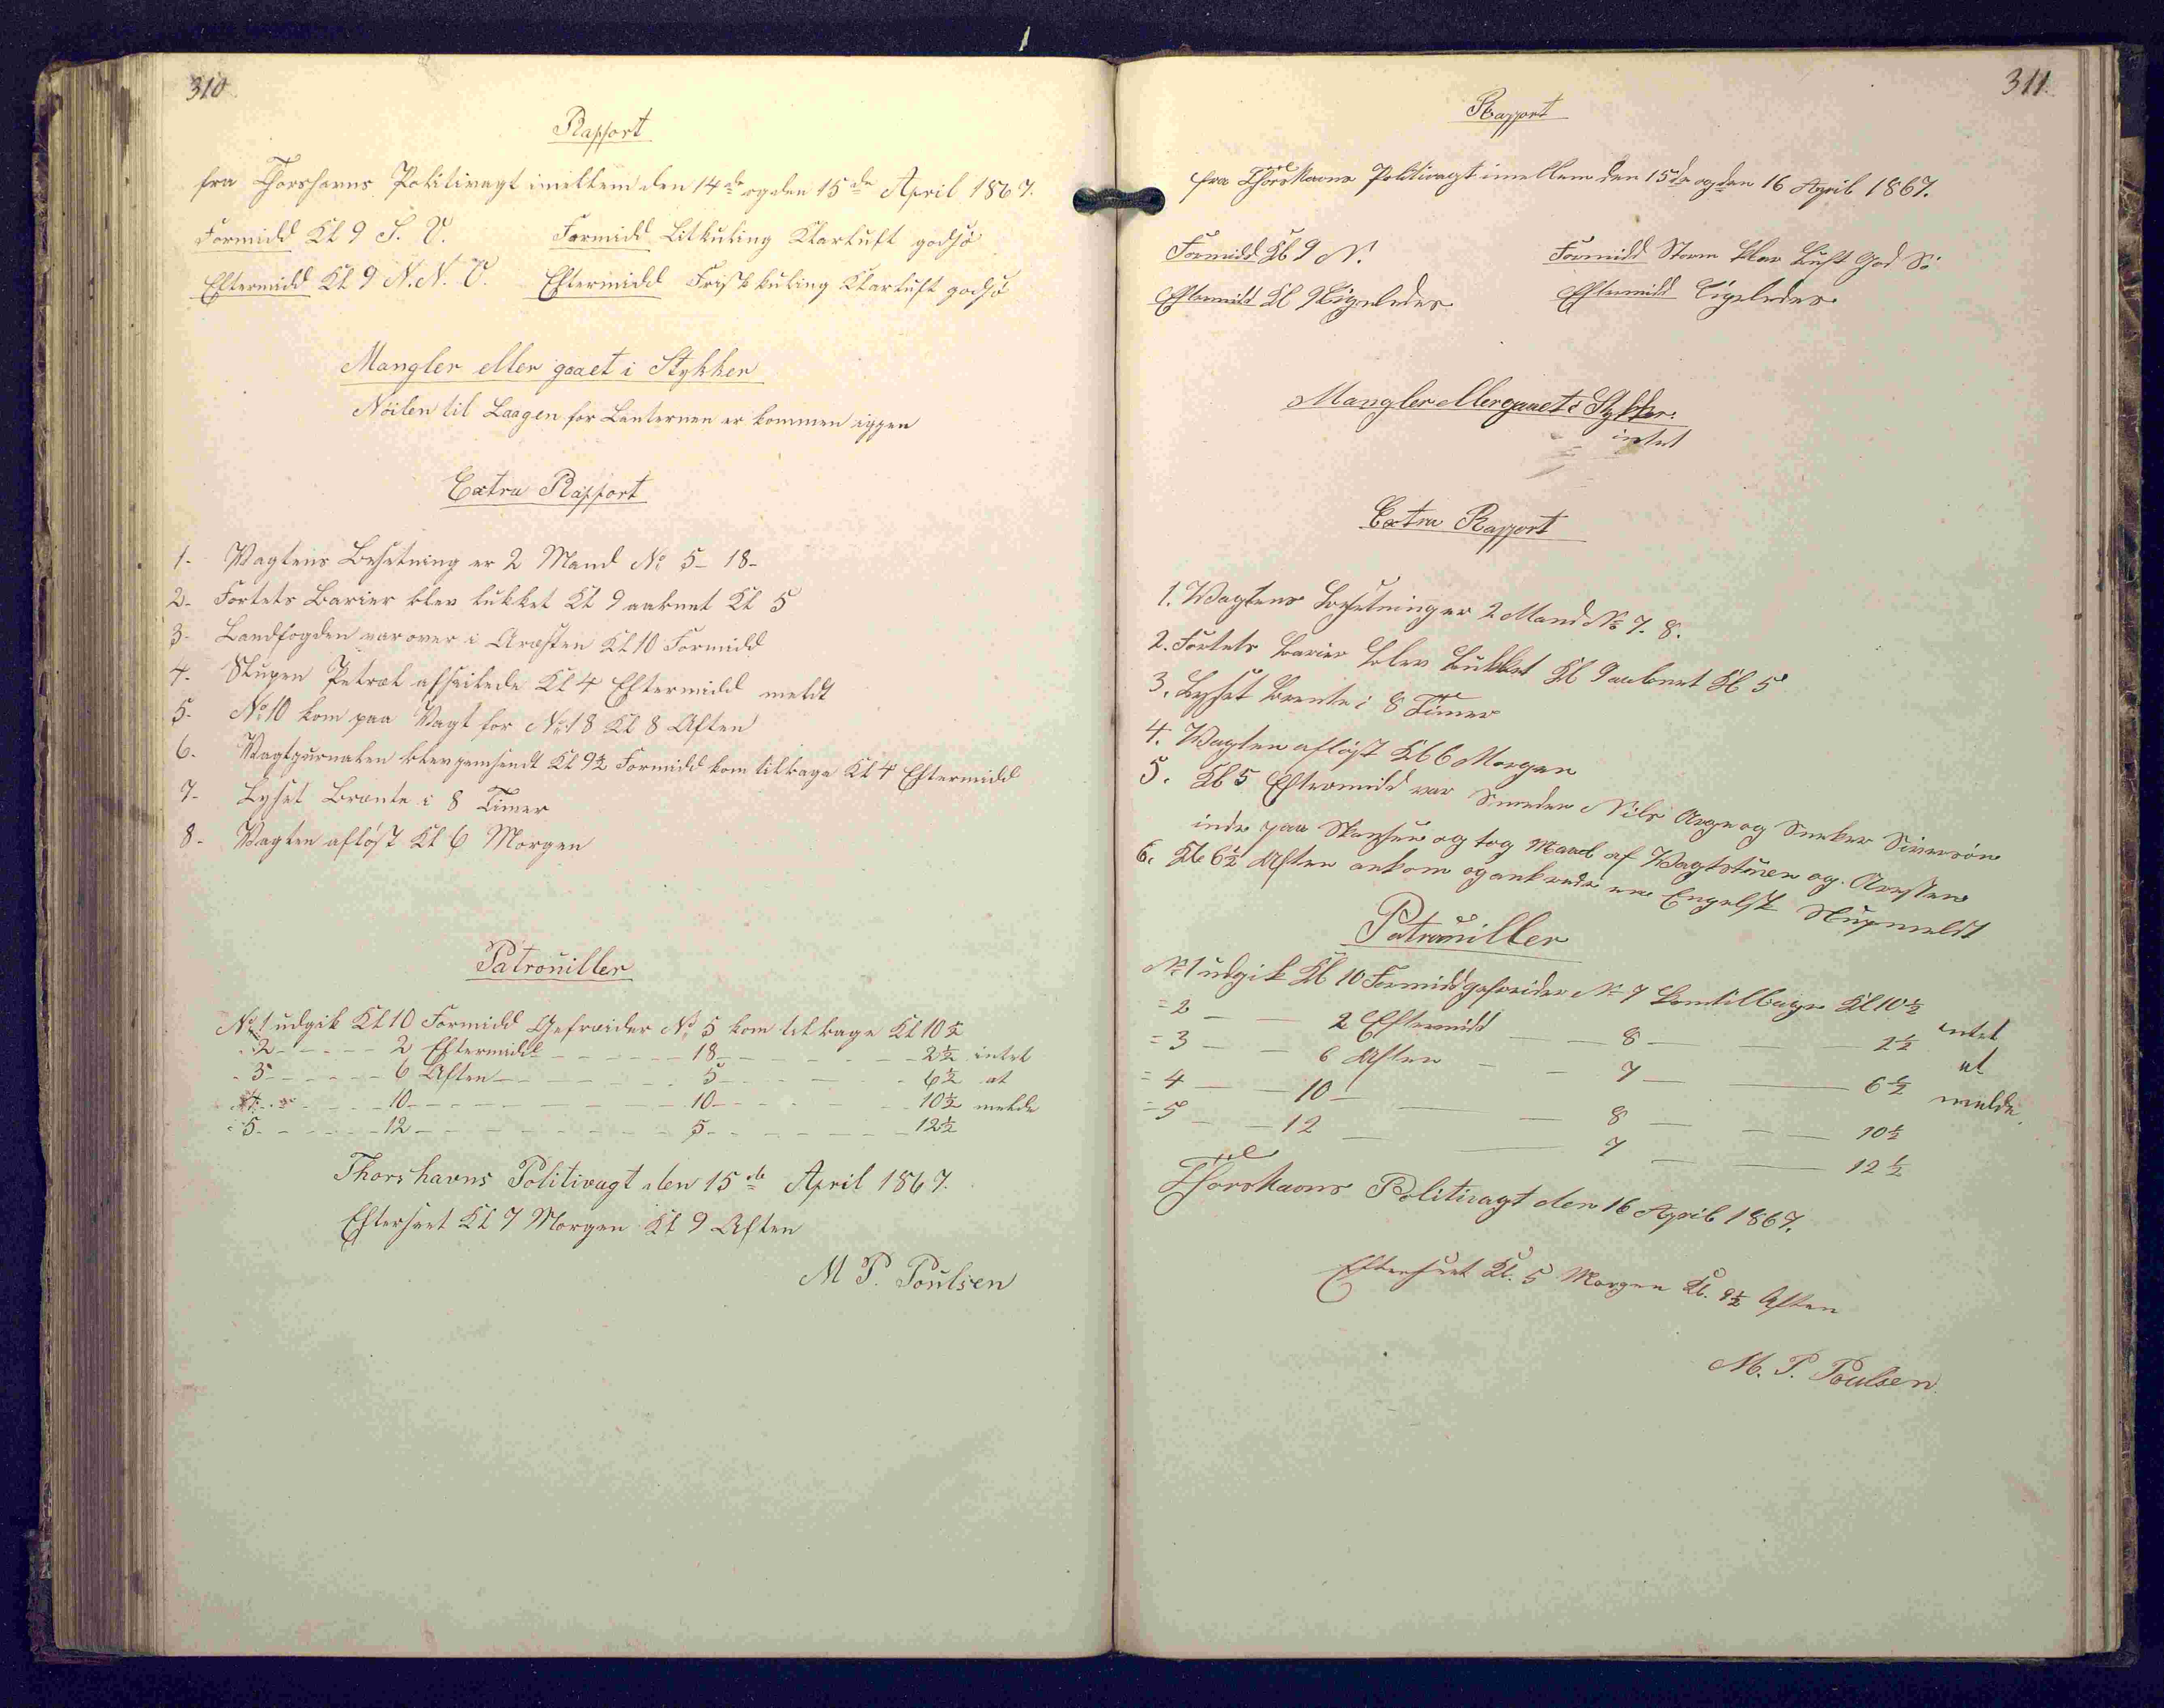 310
Rapport
fra Thorshavns Politivagt imellem den 14de og den 15de April 1867.
Formidd Kl 9 S. V. Formidd Litkuling Klarluft godsø
Eftermidd Kl 9 N. N. V. Eftermidd Frisk kuling Klarluft godsø
Mangler eller gaaet i Stykker
Nöilen til Laagen for Lanternen er kommen iggen
Extra Rapport
1. Vagtens Besetning er 2 Mand No 5 - 18 -
2. Fortets Barier blev lukket Kl 9 aabnet Kl 5
3. Landfogden var over i Aræsten Kl 10 Formidd
4. Slupen Petræl afseilede Kl 4 Eftermidd meldt
5. No 10 kom paa Vagt for No 18 Kl 8 Aften
6. Vagtjurnalen blev gemsendt Kl 9½ Formidd kom tilbage Kl 4 Eftermidd
7. Lyset Brænte i 8 Timer
8. Vagten afløst Kl 6 Morgen
Patrouiller
No 1 udgik Kl 10 Formidd Gefreider No 5 kom tilbage Kl 10½
2 - - - 2 Eftermidd - - - 18 - - - 2½ intet
3 - - - 6 Aften - - - 5 - - - 6½ at
4 - - - 10 - - - 10 - - - 10½ melde
5 - - - 12 - - - 5 - - - 12½
Thorshavns Politivagt den 15de April 1867.
Efterseet Kl 7 Morgen Kl 9 Aften
M P. Poulsen
311.
Rapport
fra Thorshavns Politivagt imellem den 15de og den 16 April 1867.
Formidd Kl 9 N. Formidd Storm klar Luft God Sö
Eftermidd Kl 9 Ligeledes Eftermidd Ligeledes
Mangler eller gaaet i Stykker.
intet
Extra Rapport
1. Wagtens Besetning er 2 Mand No 7. 8.
2. Fortets Barier blev Lukket Kl 9 aabnet Kl 5
3. Lyset Brente i 8 Timer
4. Wagten afløst Kl 6 Morgen
5. Kl 5 Eftermidd var Smeden Nils Arge og Sneker Siversön
inde paa Skansen og tog Maal af Wagtstuen og Aresten
6. Kl 6½ Aften ankom og ankrede en Engelsk Slup meldt
Patrouiller
No 1 udgik Kl 10 Formidd gefreider No 7 kom tilbage Kl 10½
= 2 — — 2 Eftermidd — — 8 — — 2½ intet
= 3 — — 6 Aften — — 7 — — 6½ at
= 4 — — 10 — — 8 — — 10½ melde
= 5 — — 12 — — 7 — — 12½
Thorshavns Politivagt den 16 April 1867.
Efterseet Kl. 5 Morgen Kl. 9½ Aften
M. P. Poulsen.